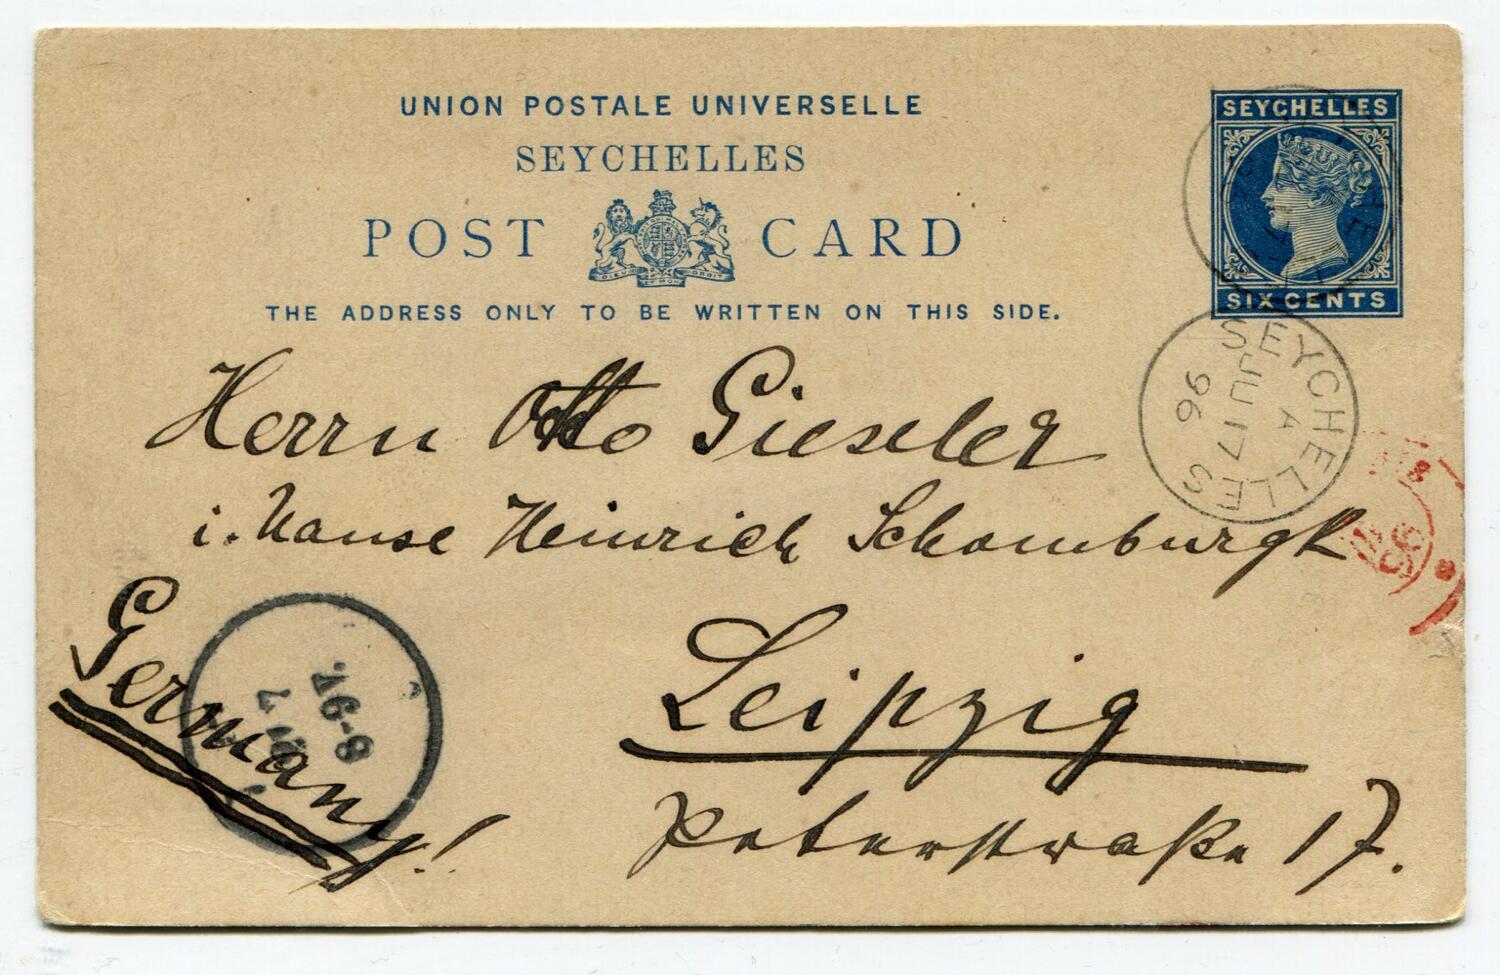 UNION POSTALE UNIVERSELLE
SEYCHELLES
POST CARD
THE ADDRESS ONLY TO BE WRITTEN ON THIS SIDE.
SEYCHELLES
SIX CENTS
SEYCHELLES
A
JU 17
96
Herrn Otto Gieseler
i. Hause Heinrich Schomburgk
Leipzig
Peterstraße 17.
Germany!
7-8
96